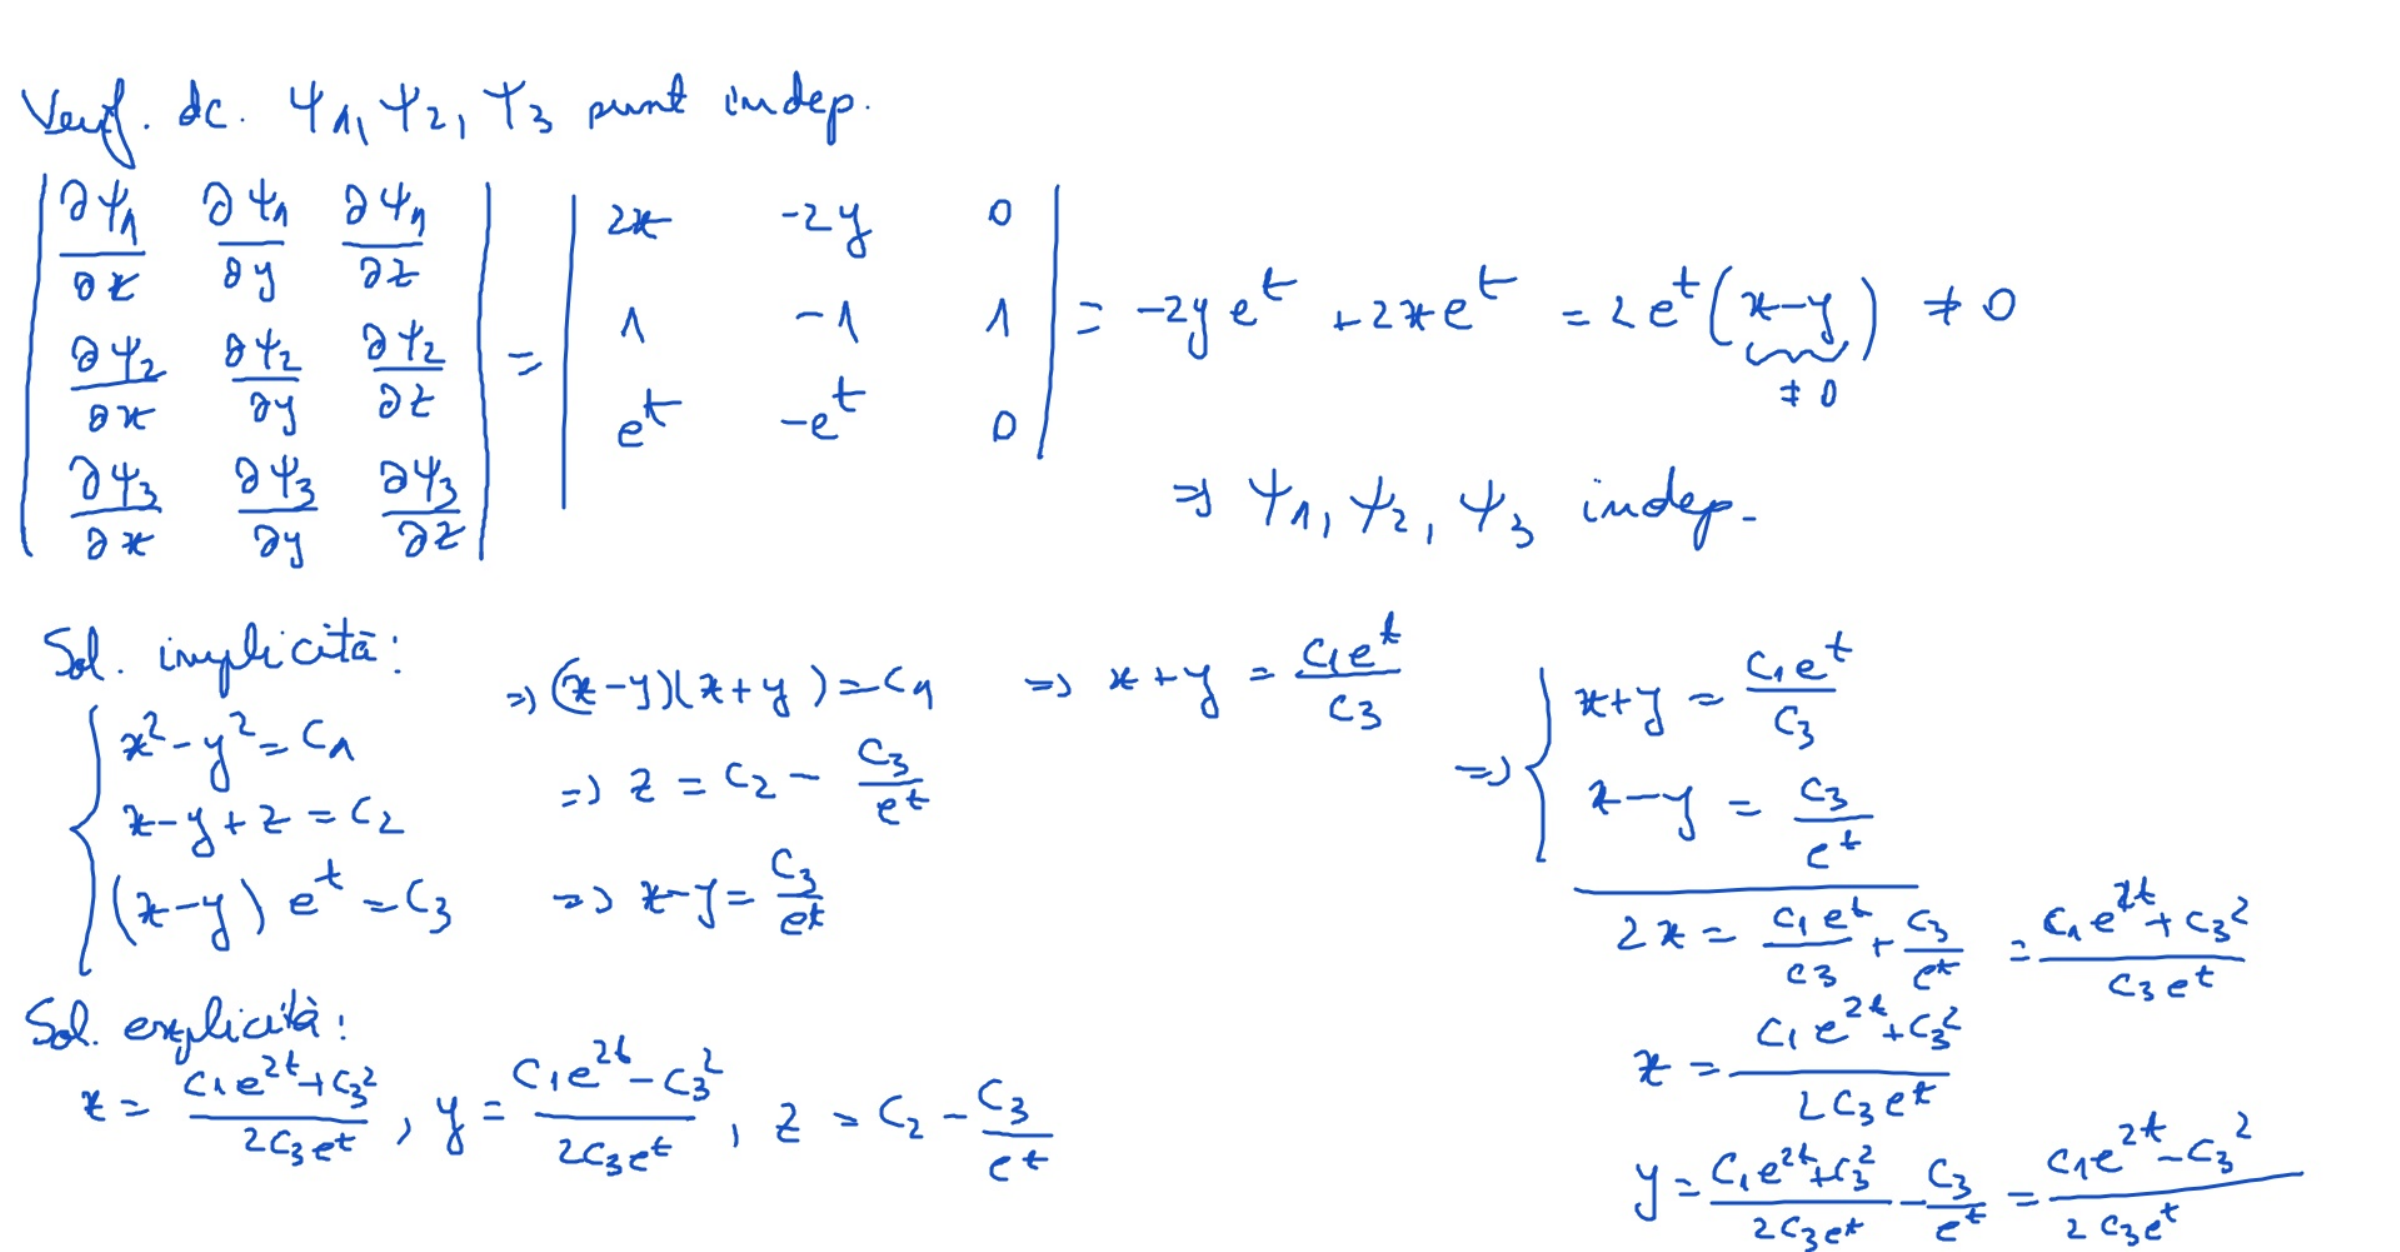 Verif. dc. ψ1, ψ2, ψ3 sunt indep.
| ∂ψ1/∂x ∂ψ1/∂y ∂ψ1/∂z |
| ∂ψ2/∂x ∂ψ2/∂y ∂ψ2/∂z |
| ∂ψ3/∂x ∂ψ3/∂y ∂ψ3/∂z |
=
| 2x -2y 0 |
| 1 -1 1 |
| e^t -e^t 0 |
= -2y e^t + 2x e^t = 2 e^t (x-y) ≠ 0
≠ 0
⇒ ψ1, ψ2, ψ3 indep.
Sol. implicită:
x² - y² = C1 ⇒ (x-y)(x+y) = C1 ⇒ x+y = C1 e^t / C3
x - y + z = C2 ⇒ z = C2 - C3/e^t
(x-y) e^t = C3 ⇒ x-y = C3/e^t
⇒ { x+y = C1 e^t / C3
x-y = C3/e^t
2x = C1 e^t / C3 + C3/e^t = (C1 e^2t + C3²) / (C3 e^t)
x = (C1 e^2t + C3²) / (2 C3 e^t)
y = (C1 e^2t + C3²) / (2 C3 e^t) - C3/e^t = (C1 e^2t - C3²) / (2 C3 e^t)
Sol. explicită:
x = (C1 e^2t + C3²) / (2 C3 e^t), y = (C1 e^2t - C3²) / (2 C3 e^t), z = C2 - C3/e^t